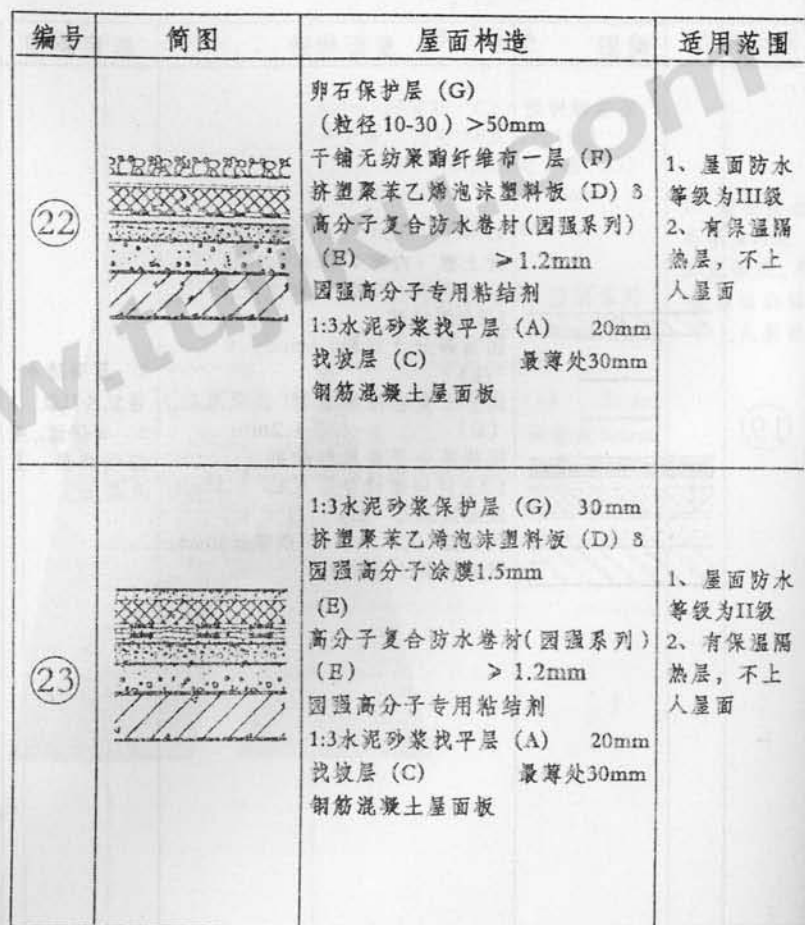 编号 简图 屋面构造 适用范围
22
卵石保护层 (G)
(粒径10-30) >50mm
干铺无纺聚酯纤维布一层 (F)
挤塑聚苯乙烯泡沫塑料板 (D) δ
高分子复合防水卷材(固强系列)
(E) ≥1.2mm
固强高分子专用粘结剂
1:3水泥砂浆找平层 (A) 20mm
找坡层 (C) 最薄处30mm
钢筋混凝土屋面板
1、屋面防水
等级为III级
2、有保温隔
热层，不上
人屋面
23
1:3水泥砂浆保护层 (G) 30mm
挤塑聚苯乙烯泡沫塑料板 (D) δ
固强高分子涂膜1.5mm
(E)
高分子复合防水卷材(固强系列)
(E) ≥1.2mm
固强高分子专用粘结剂
1:3水泥砂浆找平层 (A) 20mm
找坡层 (C) 最薄处30mm
钢筋混凝土屋面板
1、屋面防水
等级为II级
2、有保温隔
热层，不上
人屋面
w.tujiku.com